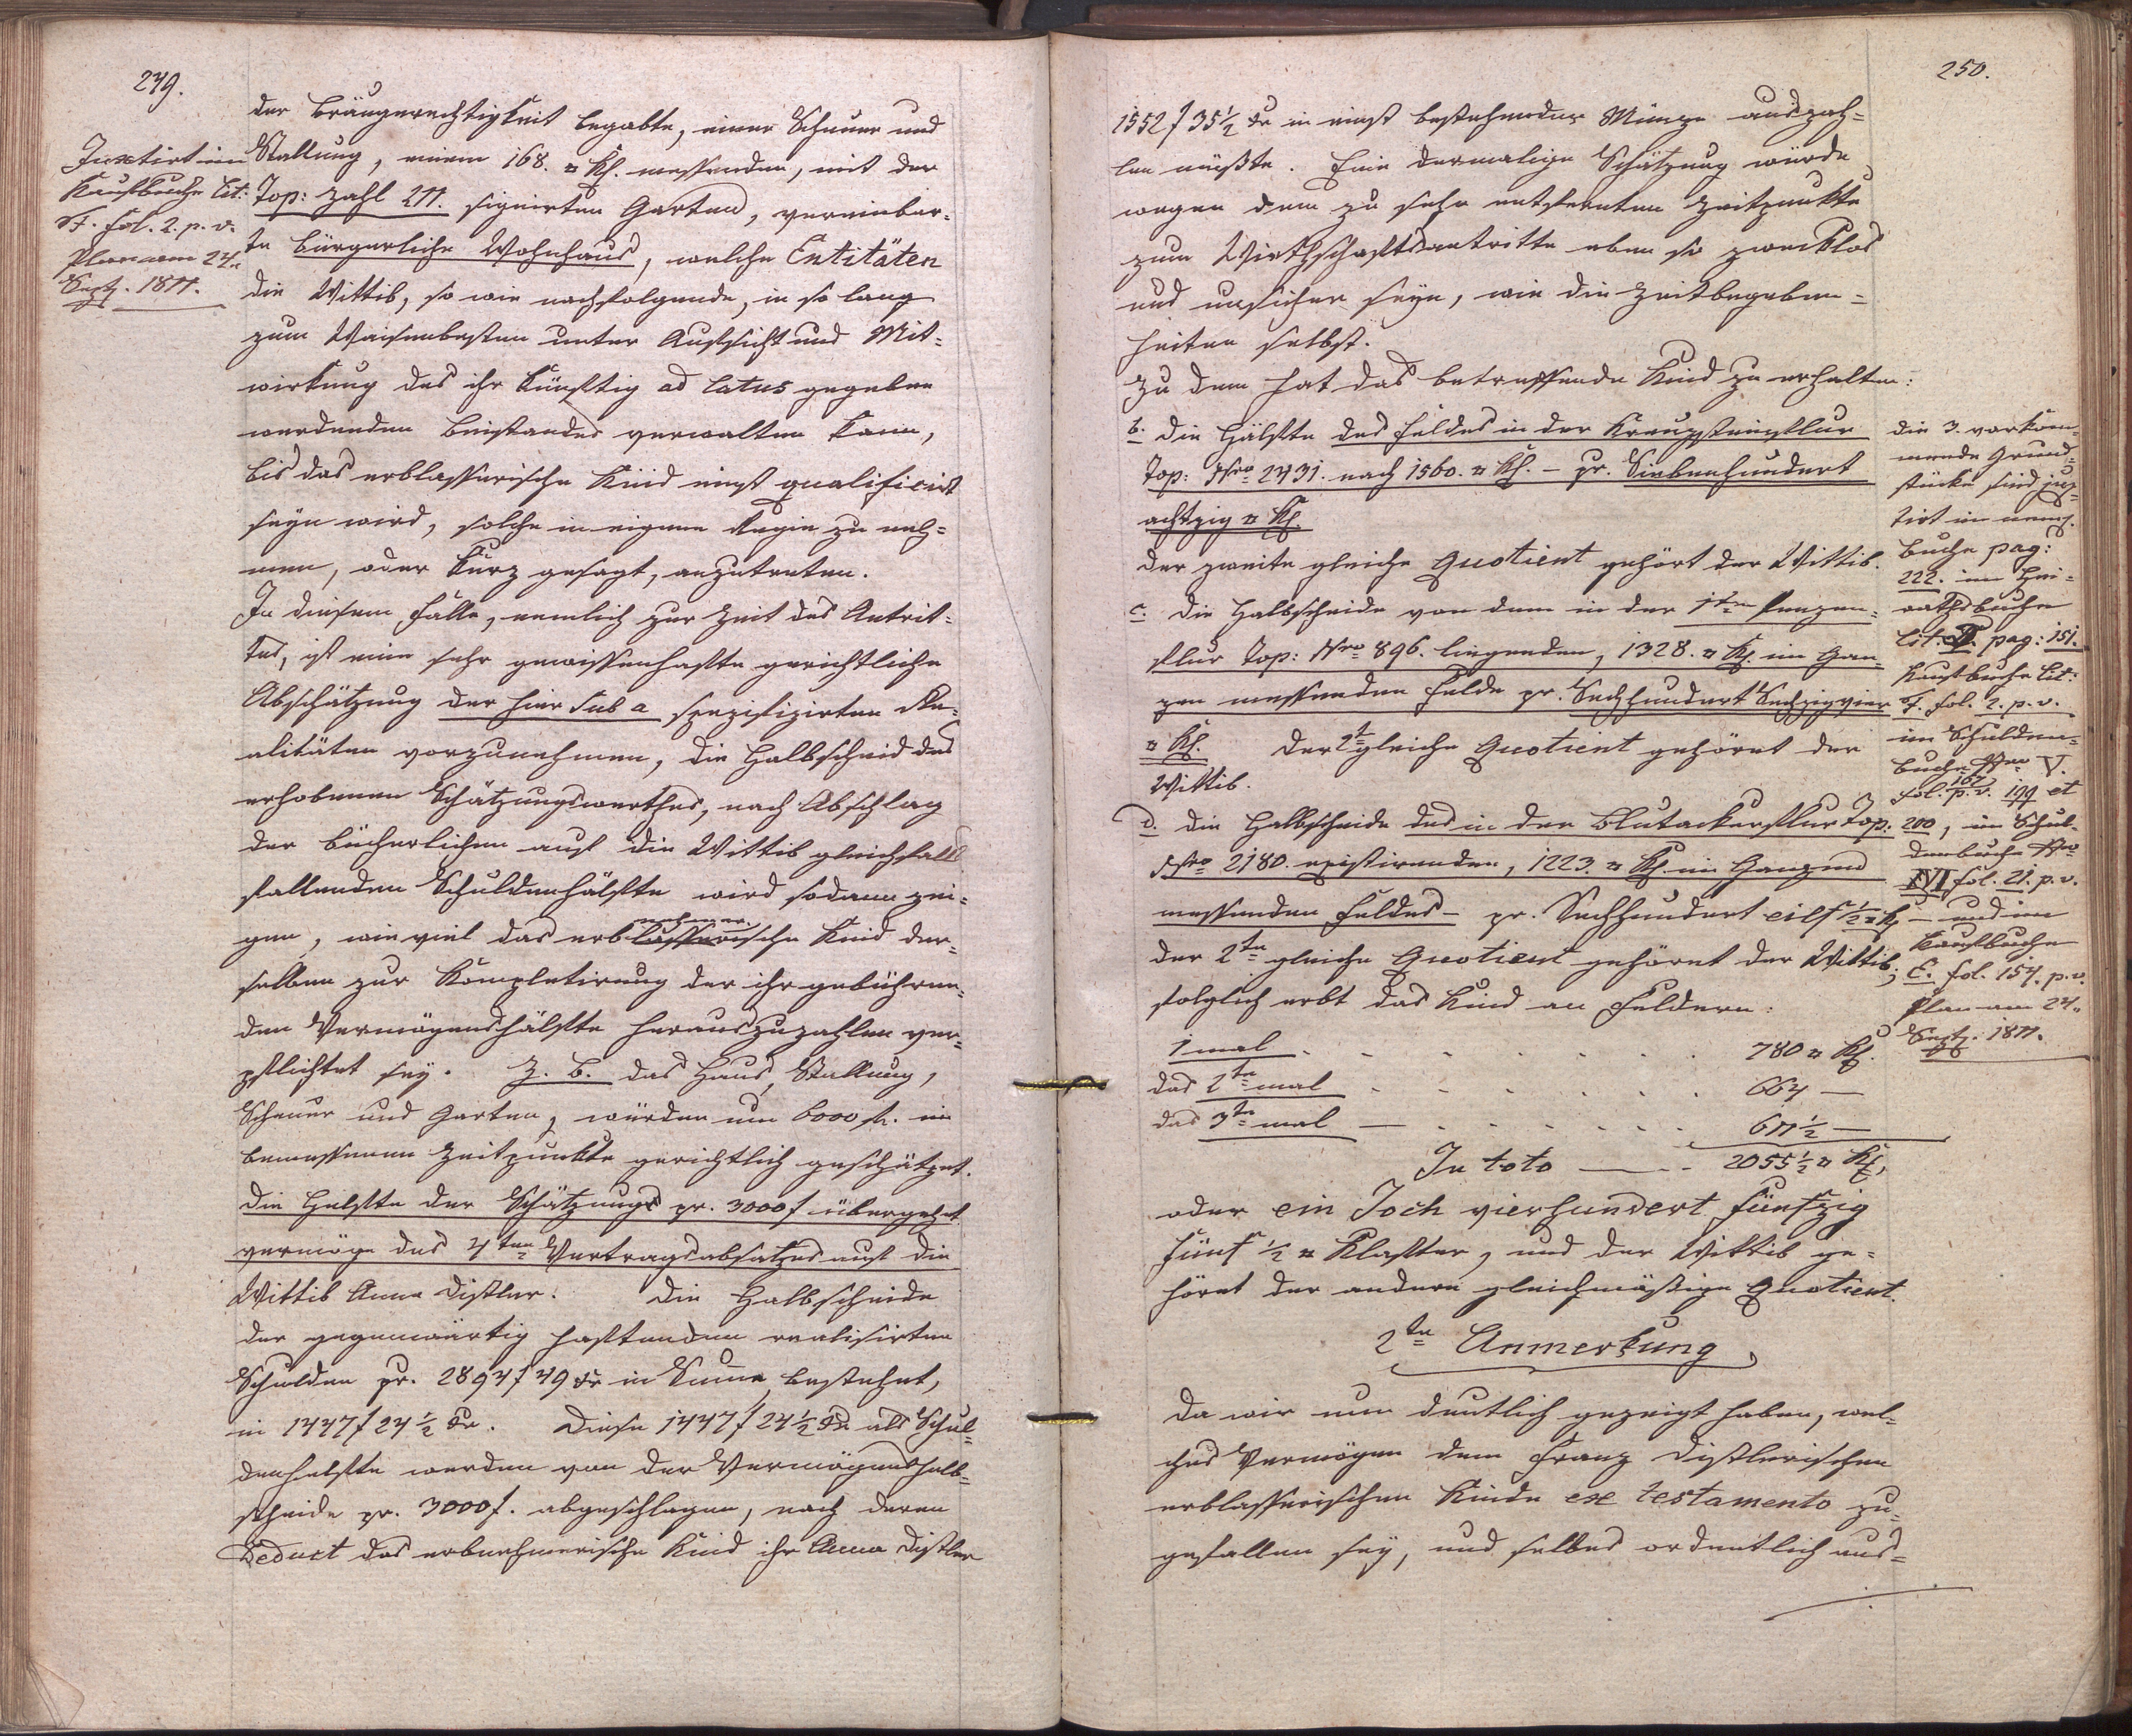 249.
der Bräugerechtigkeit begabte, einer Scheuer und
Stallung, einem 168. ¤ Kl. messenden, mit der
Top: Zahl 211. signirten Garten, vereinbar-
te bürgerliche Wohnhaus, welche Entitäten
die Wittib, so wie nachfolgende, in so lang
zum Waisenbesten unter Aufsicht und Mit-
wirkung des ihr künftig ad latus gegeben
werdenden Beistandes verwalten kann,
bis das erblasserische Kind einst qualificirt
seyn wird, solche in eigene Regie zu neh-
men, oder kurz gesagt, anzutreten.
In diesem Falle, nemlich zur Zeit des Antrit-
tes, ist eine sehr gewissenhafte gerichtliche
Abschätzung der hier sub a spezifizirten Re-
alitäten vorzunehmen, die Halbscheid des
erhobenen Schätzungswerthes, nach Abschlag
der bücherlichen auf die Wittib gleichfalls
fallenden Schuldenhälfte wird sodann zei-
nehmer
gen, wie viel das erblasserische Kind der-
selben zur Kompletirung der ihr gebühren-
den Vermögenshälfte herauszuzahlen ver-
pflichtet sey. Z. B. das Haus, Stallung,
Scheuer und Garten, würden um 6000 fl. im
bemessenen Zeitpunkte gerichtlich geschätzet.
Die Helfte der Schätzung pr. 3000 f übergehet
vermöge des 4ten Vertragsabsatzes auf die
Wittib Anna Distler. Die Halbscheide
der gegenwärtig haftenden realisirten
Schulden pr. 2894 f 49 Xr in Summa, bestehet,
in 1447 f 24 ½ Xr. Diese 1447 f 24 ½ Xr als Schul-
denhelfte werden von der Vermögenshalb-
scheide pr. 3000 f. abgeschlagen, nach deren
Deduct das erbnehmerische Kind ihr Anna Distler
Juxtirt im
Kaufbuche Lit:
F. fol. 2. p. v.
Plan am 24n
Sept. 1811.
250.
1552 f 35 ½ Xr in einst bestehender Münze auszah-
len müßte. Eine dermalige Schätzung würde
wegen dem zu sehr entfernten Zeitpunkte
zum Wirthschaftsantritte eben so zwecklos
und unsicher seyn, wie die Zeitbegeben-
heiten selbst.
Zu dem hat das betreffende Kind zu erhalten:
b. Die Hälfte des Feldes in der Kreuzsteinflur
Top: Nro 2431. nach 1560. ¤ Kl. — pr. Siebenhundert
achtzig ¤ Kl.
Der zweite gleiche Quotient gehört der Wittib.
c. Die Halbscheide von dem in der 1ten
flur Top: Nro 896. liegenden, 1328. ¤ Kl. im Gan-
zen messenden Felde pr. Sechhundert Sechzigvier
¤ Kl. Der 2te gleiche Quotient gehöret der
Wittib.
d. Die Halbscheide des in der Blutackerflur Top.
Nro 2180. existirenden, 1223. ¤ Kl. im Ganzen
messenden Feldes — pr. Sechhundert eilf ½ ¤ Kl
Der 2te gleiche Quotient gehöret der Wittib;
folglich erbt das Kind an Feldern:
1 mal . . . . . . . 780 ¤ Kl.
das 2te mal . . . . . . 664 —
das 3te mal — . . . . . . 611 ½ —
In toto — . . 2055 ½ ¤ Kl,
oder ein Joch vierhundert fünfzig
fünf ½ ¤ Klafter, und der Wittib ge-
höret der andere gleichmäßige Quotient.
2te Anmerkung
Da wir nun deutlich gezeigt haben, wel-
ches Vermögen dem Franz Distlerischen
erblasserischen Kinde ex testamento zu-
gefallen sey, und selbes ordentlich aus-
Die 3. vorkom-
mende Grund-
stücke sind jux-
tirt im
buche pag:
222. im Hei-
rathsbuche
Lit. pag: 151.
Kaufbuche Lit:
F. fol. 2. p. v.
im Schulden-
buche Nro V.
167
fol. p. v. 199 et
200, im Schul-
denbuche Nro
XVI fol. 21. p. v.
— und im
Kaufbuche
E. fol. 154. p. v.
Plan am 24n
Sept. 1811.